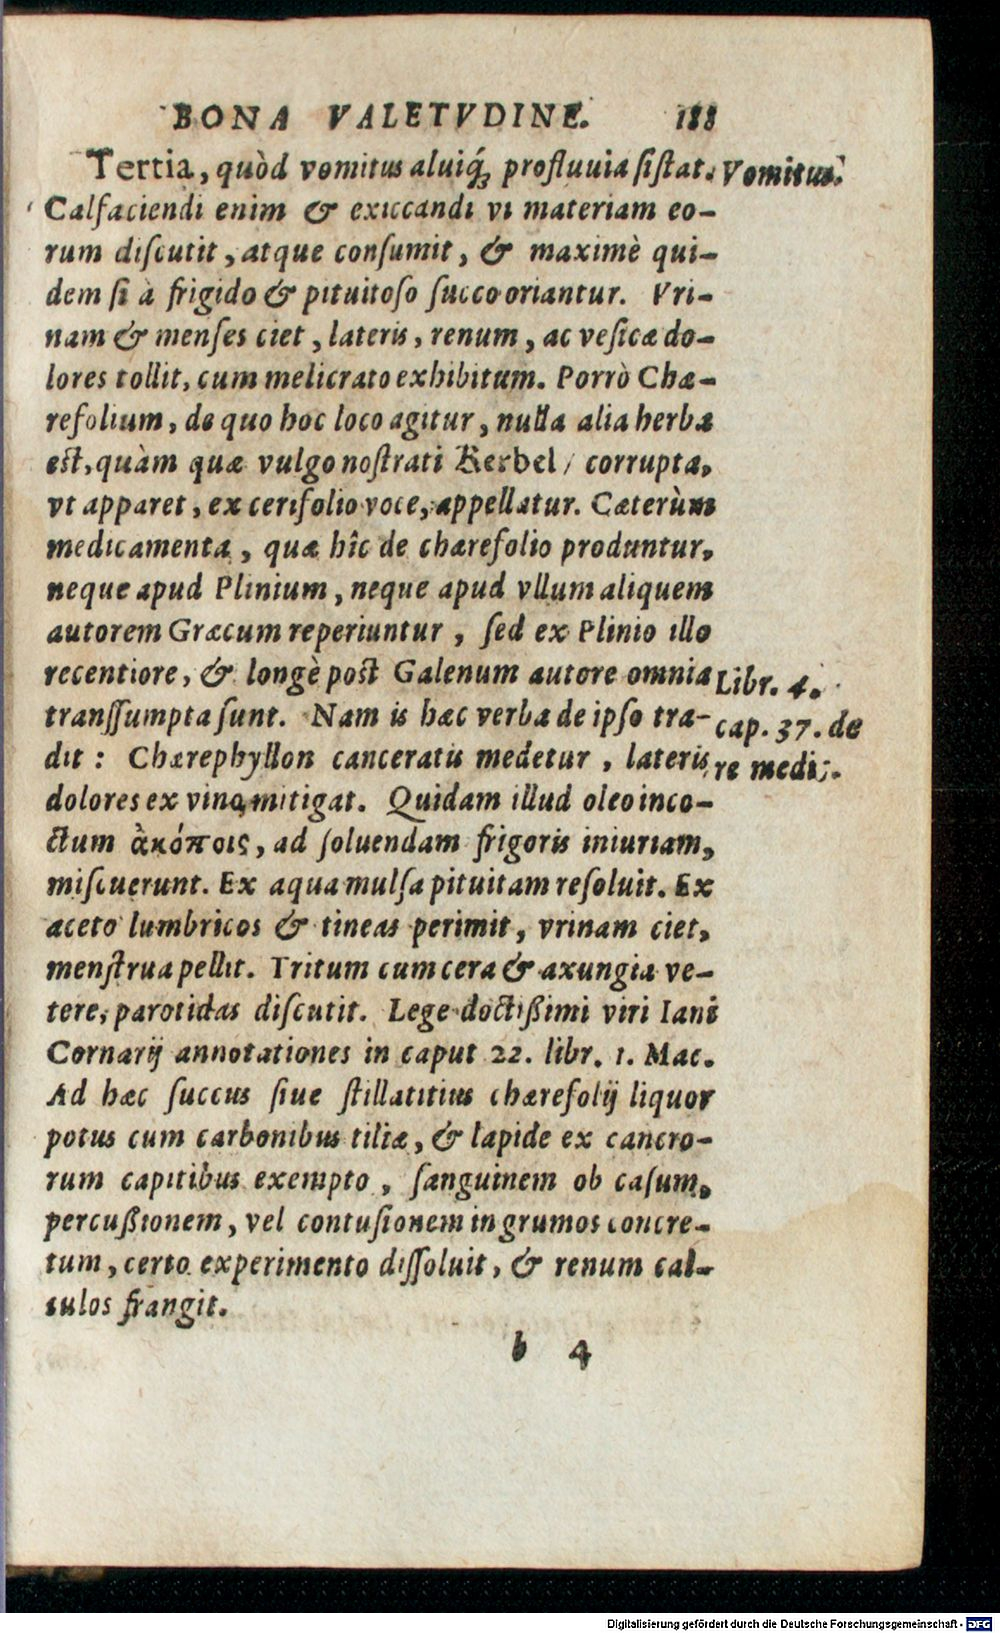 BONA VALETVDINE. 188
Tertia, quòd vomitus aluiq́; profluuia ſiſtat. Vomitus.
Calfaciendi enim & exiccandi vi materiam eo-
rum diſcutit, atque conſumit, & maximè qui-
dem ſi à frigido & pituitoſo ſucco oriantur. Vri-
nam & menſes ciet, lateris, renum, ac veſicæ do-
lores tollit, cum melicrato exhibitum. Porrò Chæ-
refolium, de quo hoc loco agitur, nulla alia herba
est, quàm quæ vulgo noſtrati Kerbel/ corrupta,
vt apparet, ex cerifolio voce, appellatur. Cæterùm
medicamenta, quæ hîc de chærefolio produntur,
neque apud Plinium, neque apud vllum aliquem
autorem Græcum reperiuntur, ſed ex Plinio illo
recentiore, & longè post Galenum autore omnia
tranſſumpta ſunt. Nam is hæc verba de ipſo tra-
dit: Chærephyllon canceratis medetur, lateris
dolores ex vino mitigat. Quidam illud oleo inco-
ctum ἀκόποις, ad ſoluendam frigoris iniuriam,
miſcuerunt. Ex aqua mulſa pituitam reſoluit. Ex
aceto lumbricos & tineas perimit, vrinam ciet,
menſtrua pellit. Tritum cum cera & axungia ve-
tere, parotidas diſcutit. Lege doctiſsimi viri Iani
Cornarij annotationes in caput 22. libr. 1. Mac.
Ad hæc ſuccus ſiue ſtillatitius chærefolij liquor
potus cum carbonibus tiliæ, & lapide ex cancro-
rum capitibus exempto, ſanguinem ob caſum,
percuſsionem, vel contuſionem in grumos concre-
tum, certo experimento diſſoluit, & renum cal-
culos frangit.
b 4
Libr. 4.
cap. 37. de
re medic.
Digitalisierung gefördert durch die Deutsche Forschungsgemeinschaft - DFG